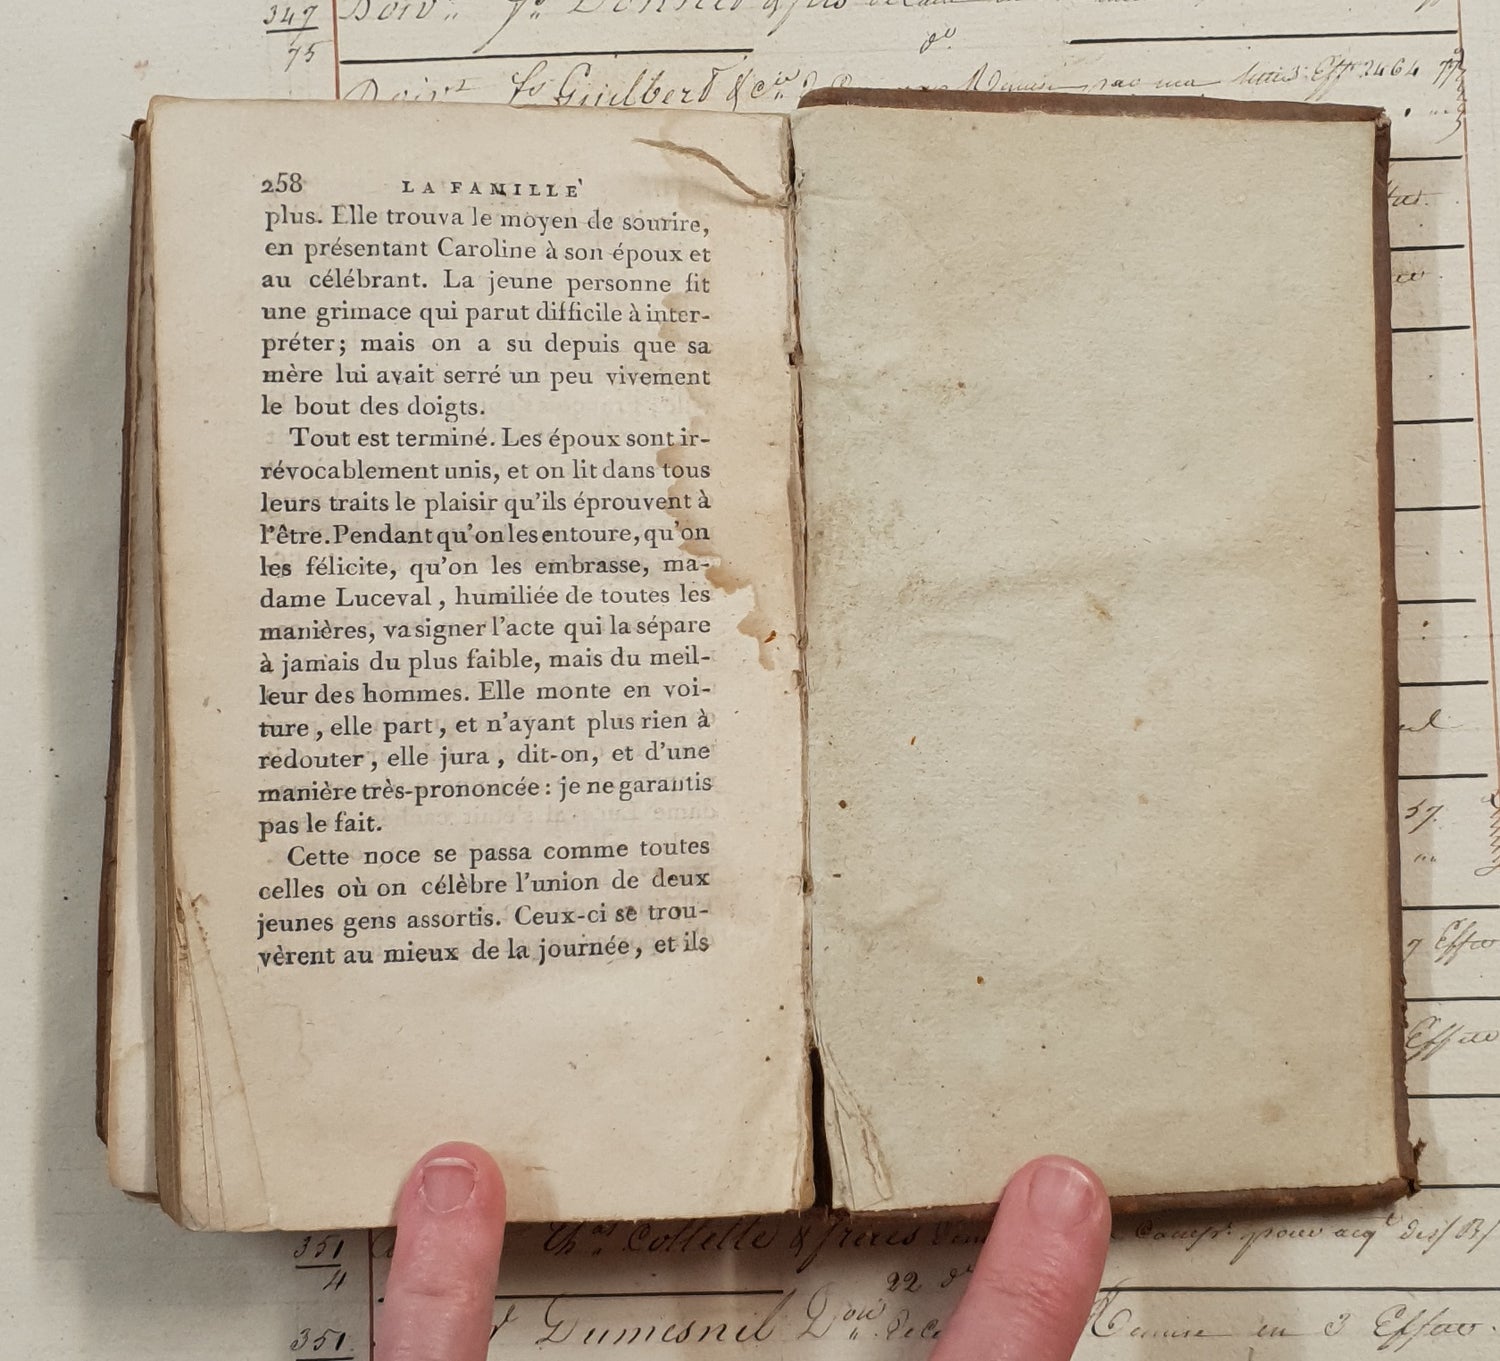 347
75
do
Doivt fs Guilbert & Cie
2464
258 LA FAMILLE
plus. Elle trouva le moyen de sourire,
en présentant Caroline à son époux et
au célébrant. La jeune personne fit
une grimace qui parut difficile à inter-
préter; mais on a su depuis que sa
mère lui avait serré un peu vivement
le bout des doigts.
Tout est terminé. Les époux sont ir-
révocablement unis, et on lit dans tous
leurs traits le plaisir qu'ils éprouvent à
l'être. Pendant qu'on les entoure, qu'on
les félicite, qu'on les embrasse, ma-
dame Luceval, humiliée de toutes les
manières, va signer l'acte qui la sépare
à jamais du plus faible, mais du meil-
leur des hommes. Elle monte en voi-
ture, elle part, et n'ayant plus rien à
redouter, elle jura, dit-on, et d'une
manière très-prononcée: je ne garantis
pas le fait.
Cette noce se passa comme toutes
celles où on célèbre l'union de deux
jeunes gens assortis. Ceux-ci se trou-
vèrent au mieux de la journée, et ils
57
351
4
Collette & frères
22 do
351
Dumesnil
Remise en 3 Effets